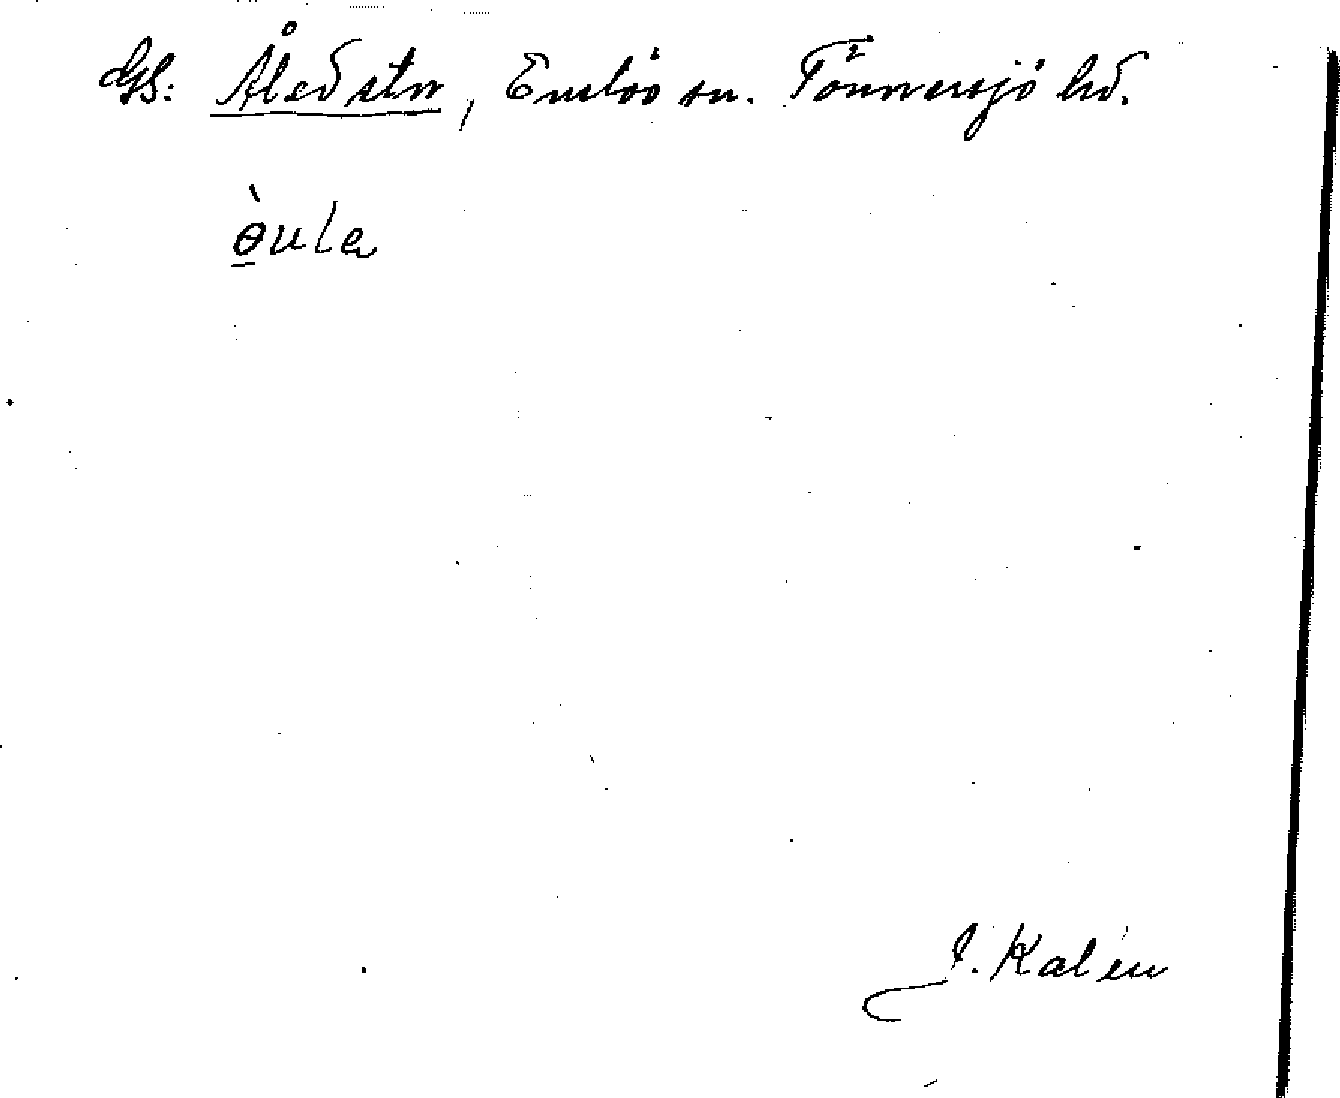 GS: Åled stn, Enslöv sn. Tönnersjö hd.
òula
J. Kalén